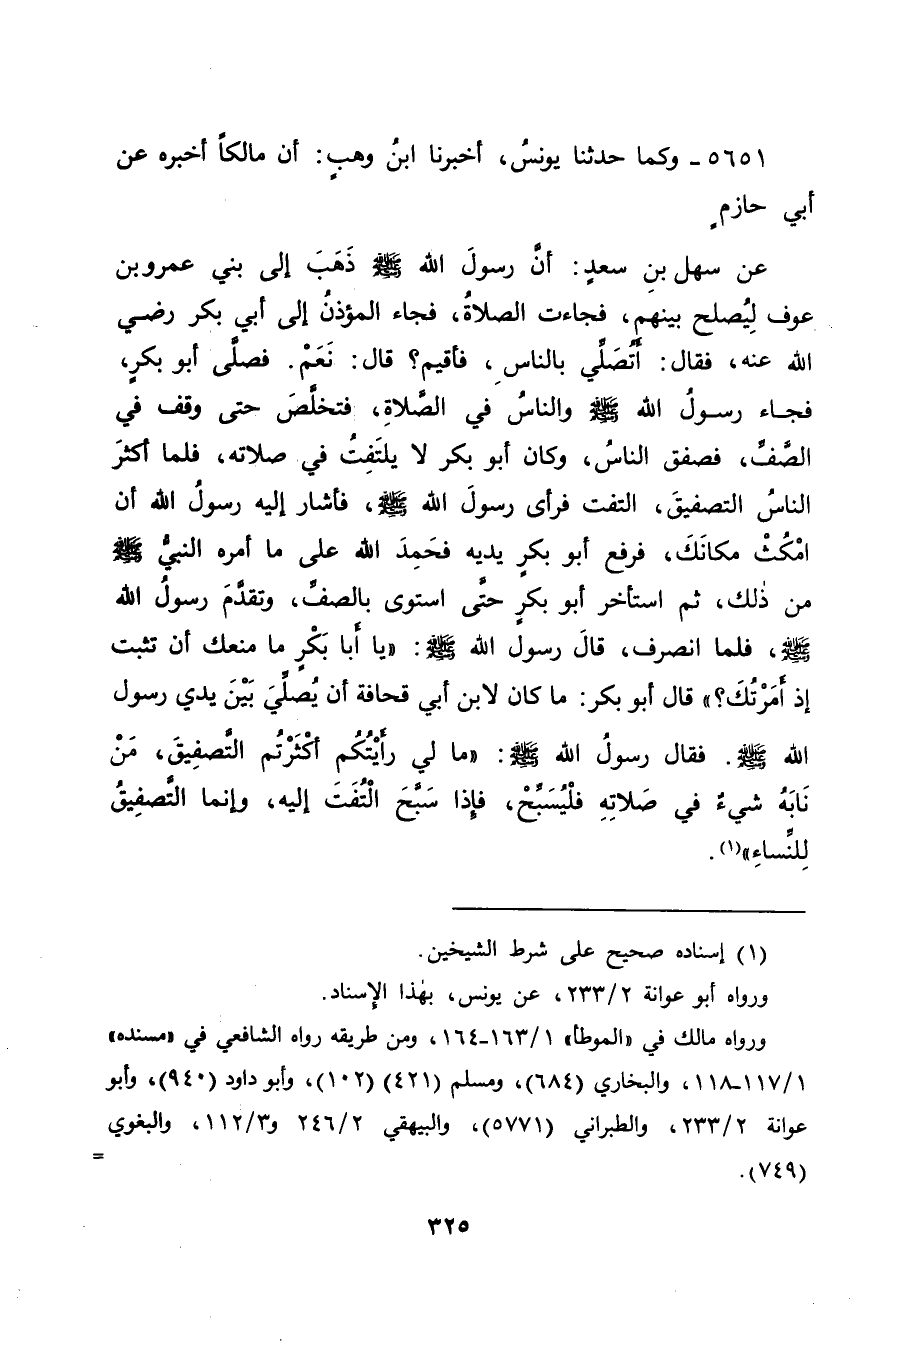 ٥٦٥١ ـ وكما حدثنا يونسُ، أخبرنا ابنُ وهبٍ: أن مالكاً أخبره عن
أبي حازمٍ
عن سهل بنِ سعدٍ: أنَّ رسولَ الله ﷺ ذَهَبَ إلى بني عمرو بن
عوف لِيُصلح بينهم، فجاءت الصلاةُ، فجاء المؤذنُ إلى أبي بكر رضي
الله عنه، فقال: أَتُصَلِّي بالناسِ، فأقيم؟ قال: نَعَمْ. فصلَّى أبو بكرٍ،
فجاء رسولُ الله ﷺ والناسُ في الصَّلاةِ، فتخلَّصَ حتى وقف في
الصَّفِّ، فصفق الناسُ، وكان أبو بكر لا يلتَفِتُ في صلاته، فلما أكثرَ
الناسُ التصفيقَ، التفت فرأى رسولَ الله ﷺ، فأشار إليه رسولُ الله أن
امْكُثْ مكانَكَ، فرفع أبو بكرٍ يديه فحَمِدَ الله على ما أمره النبيُّ ﷺ
من ذٰلك، ثم استأخر أبو بكرٍ حتَّى استوى بالصفِّ، وتقدَّمَ رسولُ الله
ﷺ، فلما انصرف، قالَ رسول الله ﷺ: «يا أَبا بَكْرٍ ما منعك أن تثبت
إذ أَمَرْتُكَ؟» قال أبو بكر: ما كان لابن أبي قحافة أن يُصلِّيَ بَيْنَ يدي رسول
الله ﷺ. فقال رسولُ الله ﷺ: «ما لي رأَيْتُكُم أكْثَرْتُم التَّصفِيقَ، مَنْ
نَابَهُ شيءٌ في صَلاتِهِ فلْيُسَبِّحْ، فإِذا سَبَّحَ الْتُفَتَ إليه، وإنما التَّصفِيقُ
لِلنِّساءِ»(١).
(١) إسناده صحيح على شرط الشيخين.
ورواه أبو عوانة ٢٣٣/٢، عن يونس، بهٰذا الإسناد.
ورواه مالك في «الموطأ» ١٦٣/١ـ١٦٤، ومن طريقه رواه الشافعي في «مسنده»
١١٧/١ـ١١٨، والبخاري (٦٨٤)، ومسلم (٤٢١) (١٠٢)، وأبو داود (٩٤٠)، وأبو
عوانة ٢٣٣/٢، والطبراني (٥٧٧١)، والبيهقي ٢٤٦/٢ و١١٢/٣، والبغوي
(٧٤٩). =
٣٢٥